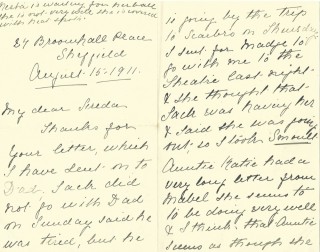 Nesta is waiting for her ball
she is not very well she is covered
with heat spots.
84 Broomhall Place
Sheffield
August 15. 1911.
My dear
Thanks for
your letter, which
I have sent on to
Dad. Jack did
not go with Dad
on Sunday said he
was tired, but he
is going by the trip
to Scarbro on Thursday
I sent for Madge to
go with me to the
Theatre last night
& she thought that
Jack was having her
& said she was going
out, so I took
Auntie Katie had a
very long letter from
Mabel she seems to
to be doing very well
& I think that Auntie
seems as though she